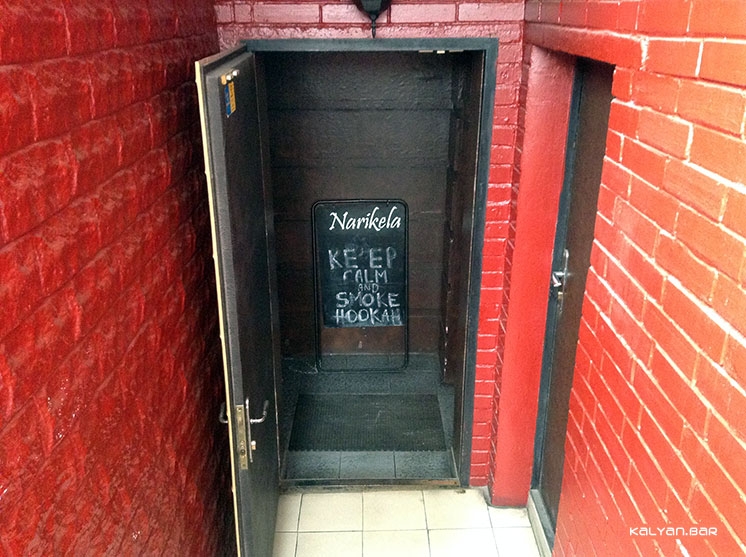 Narikela
KEEP
CALM
AND
SMOKE
HOOKAH
KALYAN.BAR